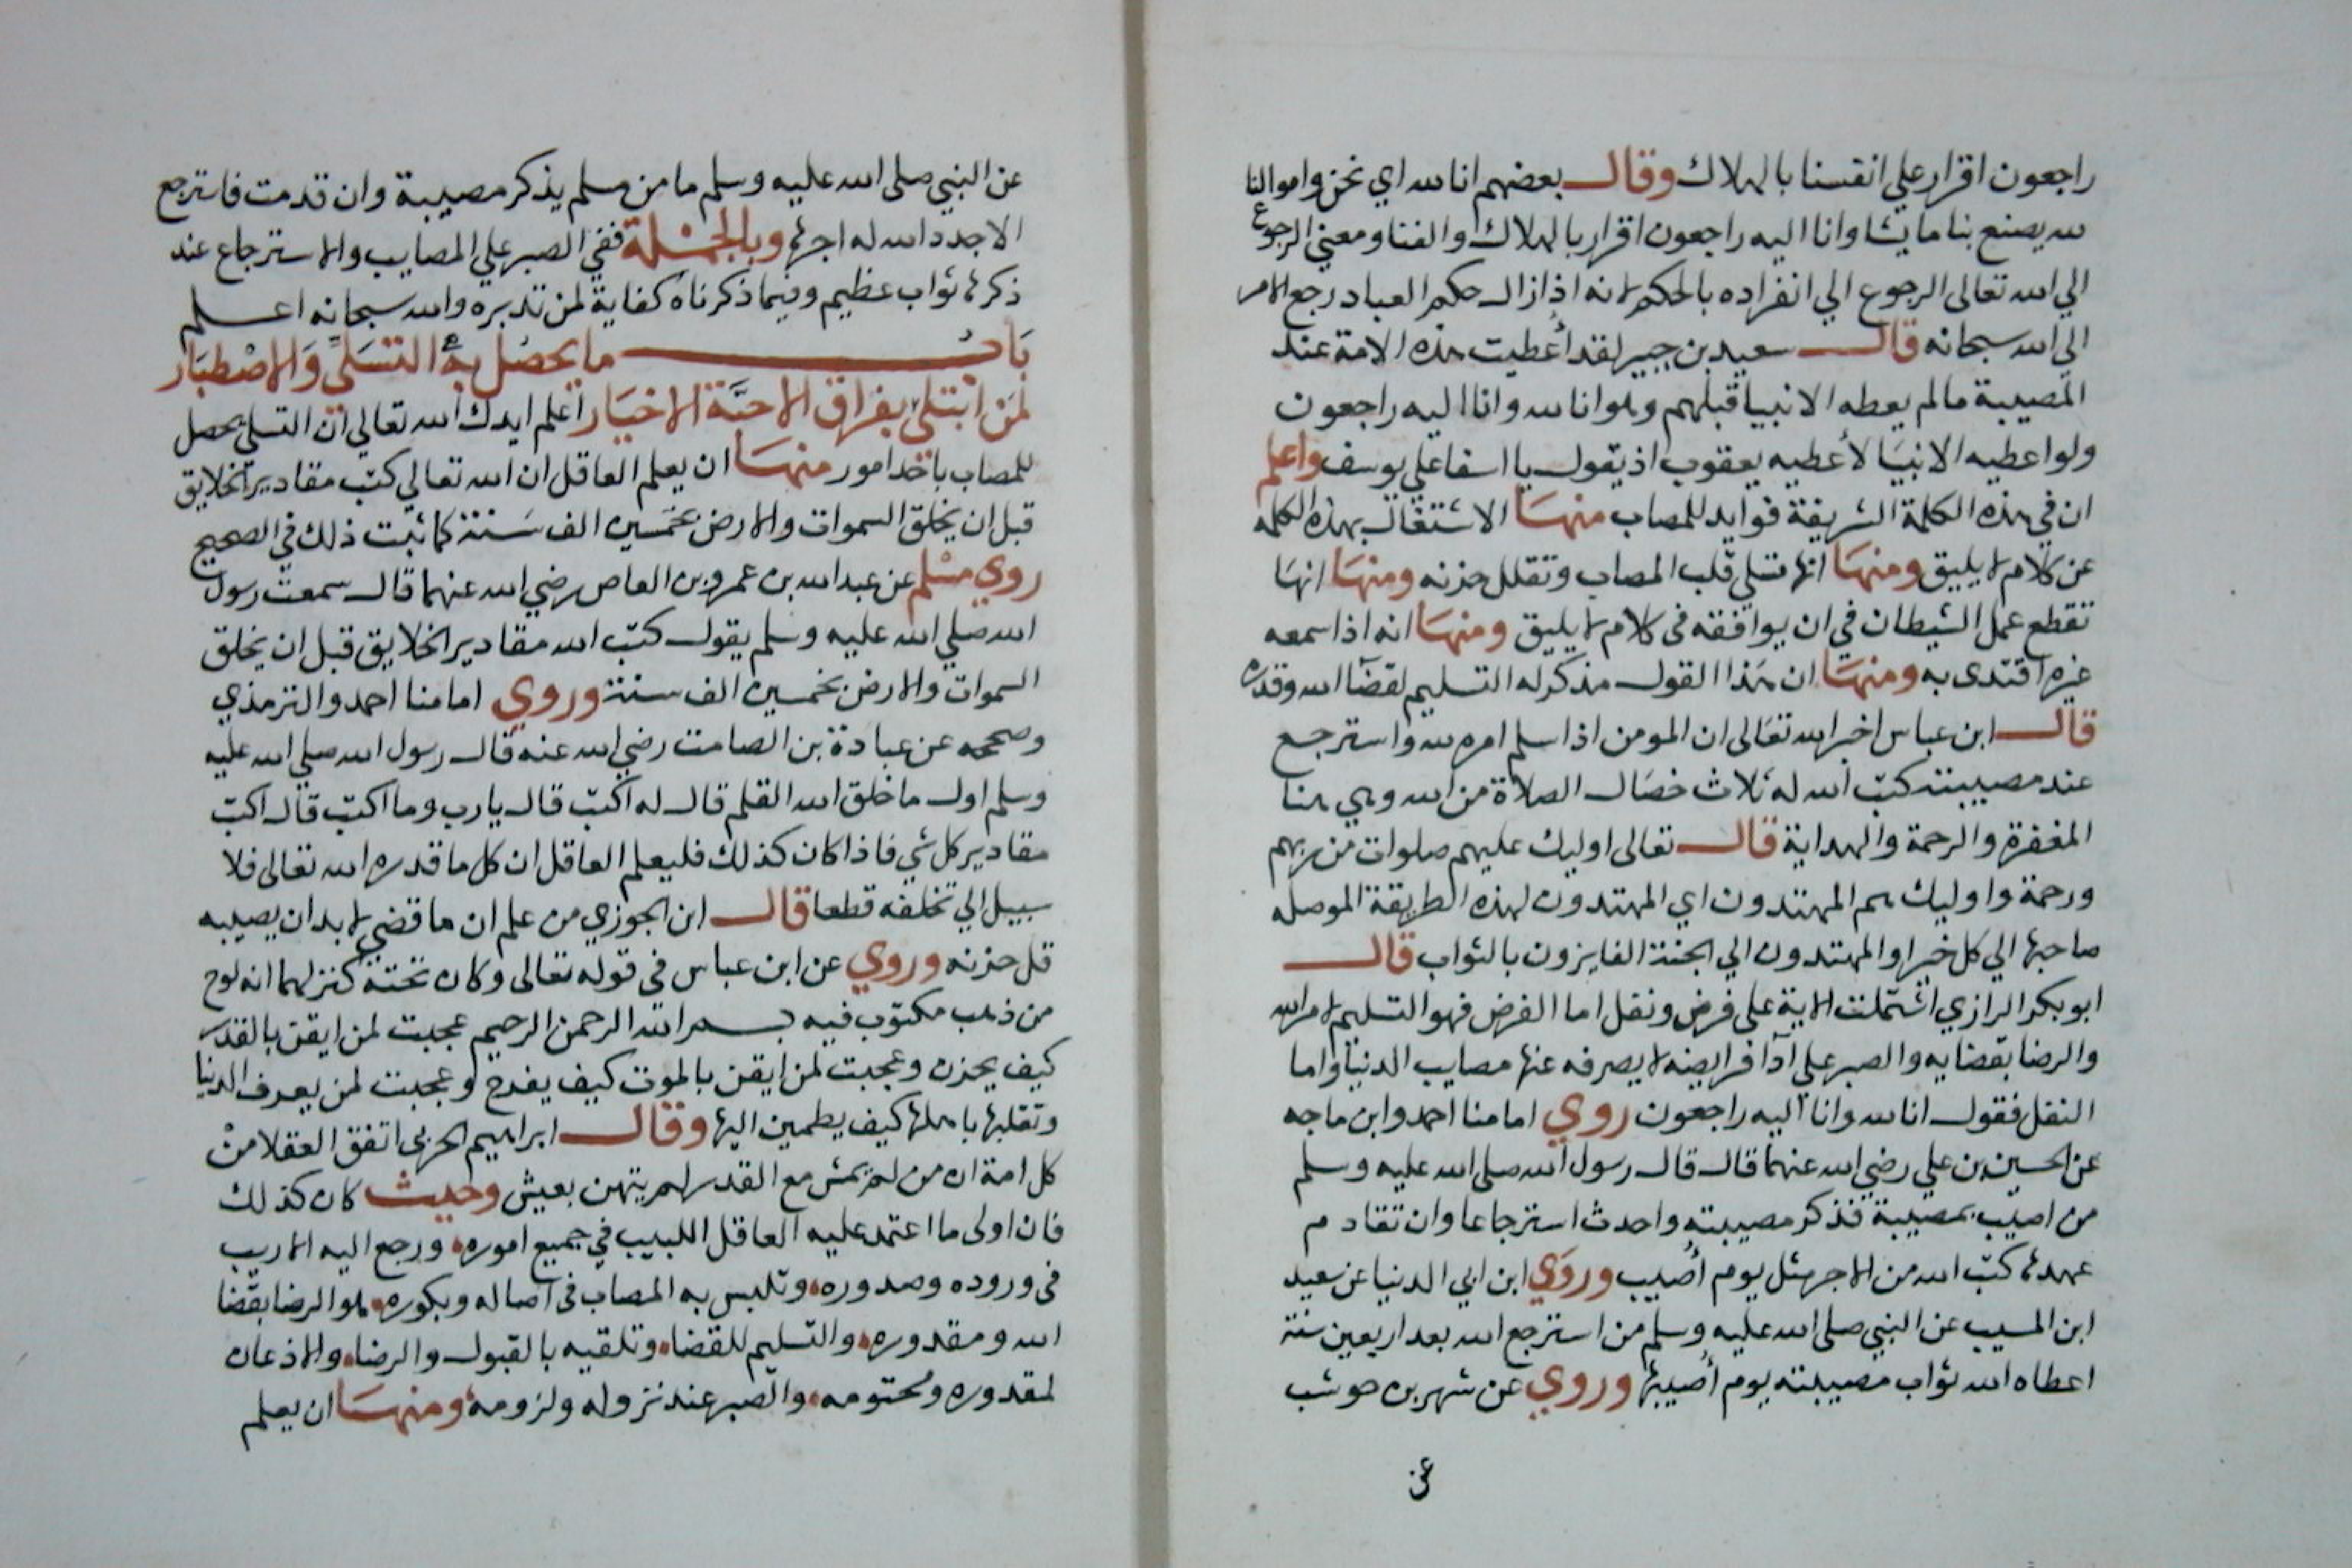 راجعون اقرار علي انفسنا بالهلاك وقال بعضهم انا لله اي نحن واموالنا
لله يصنع بنا ما يشا وانا اليه راجعون اقرار بالهلاك والفنا ومعني الرجوع
الي الله تعالى الرجوع الي انفراده بالحكم لانه اذ ازال حكم العباد رجع الامر
الي الله سبحانه قال سعيد بن جبير لقد أعطيت هذه الامة عند
المصيبة مالم يعطه الانبيا قبلهم وهو انا لله وانا اليه راجعون
ولو اعطيه الانبيا لأعطيه يعقوب اذ يقول يا اسفا علي يوسف واعلم
ان في هذه الكلمة الشريفة فوايد للمصاب منها الاشتغال بهذه الكلمه
عن كلام لا يليق ومنها انها تسلي قلب المصاب وتقلل حزنه ومنها انها
تقطع عمل الشيطان في ان يوافقه في كلام لا يليق ومنها انه اذا سمعه
غيره اقتدى به ومنها ان هذا القول مذكر له التسليم لقضآ الله وقدره
قال ابن عباس اخبر الله تعالى ان المومن اذا سلم امره لله واسترجع
عند مصيبته كتب الله له ثلاث خصال الصلاة من الله وهي هنا
المغفرة والرحمة والهداية قال تعالى اوليك عليهم صلوات من ربهم
ورحمة واوليك هم المهتدون اي المهتدون لهذه الطريقة الموصله
صاحبها الي كل خير او المهتدون الي الجنة الفايزون بالثواب قال
ابو بكر الرازي اشتملت الاية على فرض ونفل اما الفرض فهو التسليم لامر الله
والرضا بقضايه والصبر علي آدآ فرايضه لا يصرفه عنها مصايب الدنيا واما
النفل فقول انا لله وانا اليه راجعون روي امامنا احمد وابن ماجه
عن الحسين بن علي رضي الله عنهما قال قال رسول الله صلى الله عليه وسلم
من اصيب بمصيبة فذكر مصيبته واحدث استرجاعا وان تقادم
عهدها كتب الله من الاجر مثل يوم أصيب وروي ابن ابي الدنيا عن سعيد
ابن المسيب عن النبي صلى الله عليه وسلم من استرجع الله بعد اربعين سنة
اعطاه الله ثواب مصيبته يوم أصيبها وروي عن شهر بن حوشب
عن
عن النبي صلى الله عليه وسلم ما من مسلم يذكر مصيبة وان قدمت فاسترجع
الا جدد الله له اجرها وبالجملة ففي الصبر علي المصايب والاسترجاع عند
ذكرها ثواب عظيم وفيما ذكرناه كفاية لمن تدبره والله سبحانه اعلم
باب ما يحصل به التسلي والاصطبار
لمن ابتلي بفراق الاحبة الاخيار اعلم ايدك الله تعالي ان التسلي يحصل
للمصاب باحد امور منها ان يعلم العاقل ان الله تعالي كتب مقادير الخلايق
قبل ان يخلق السموات والارض بخمسين الف سنة كما ثبت ذلك في الصحيح
روي مسلم عن عبد الله بن عمرو بن العاص رضي الله عنهما قال سمعت رسول
الله صلي الله عليه وسلم يقول كتب الله مقادير الخلايق قبل ان يخلق
السموات والارض بخمسين الف سنة وروي امامنا احمد والترمذي
وصححه عن عبادة بن الصامت رضي الله عنه قال رسول الله صلي الله عليه
وسلم اول ما خلق الله القلم قال له اكتب قال يا رب وما اكتب قال اكتب
مقادير كل شي فاذا كان كذلك فليعلم العاقل ان كل ما قدره الله تعالى فلا
سبيل الي تخلفه قطعا قال ابن الجوزي من علم ان ما قضي لا بد ان يصيبه
قل حزنه وروي عن ابن عباس في قوله تعالى وكان تحته كنز لهما انه لوح
من ذهب مكتوب فيه بسم الله الرحمن الرحيم عجبت لمن ايقن بالقدر
كيف يحزن وعجبت لمن ايقن بالموت كيف يفرح وعجبت لمن يعرف الدنيا
وتقلبها باهلها كيف يطمين اليها وقال ابراهيم الحربي اتفق العقلا من
كل امة ان من لم يمش مع القدر لم يتهن بعيش وحيث كان كذلك
فان اولى ما اعتمد عليه العاقل اللبيب في جميع اموره ورجع اليه الاريب
في وروده وصدوره وتلبس به المصاب في آصاله وبكوره هو الرضا بقضا
الله ومقدوره والتسليم للقضا وتلقيه بالقبول والرضا والاذعان
لمقدوره ومحتومه والصبر عند نزوله ولزومه ومنها ان يعلم